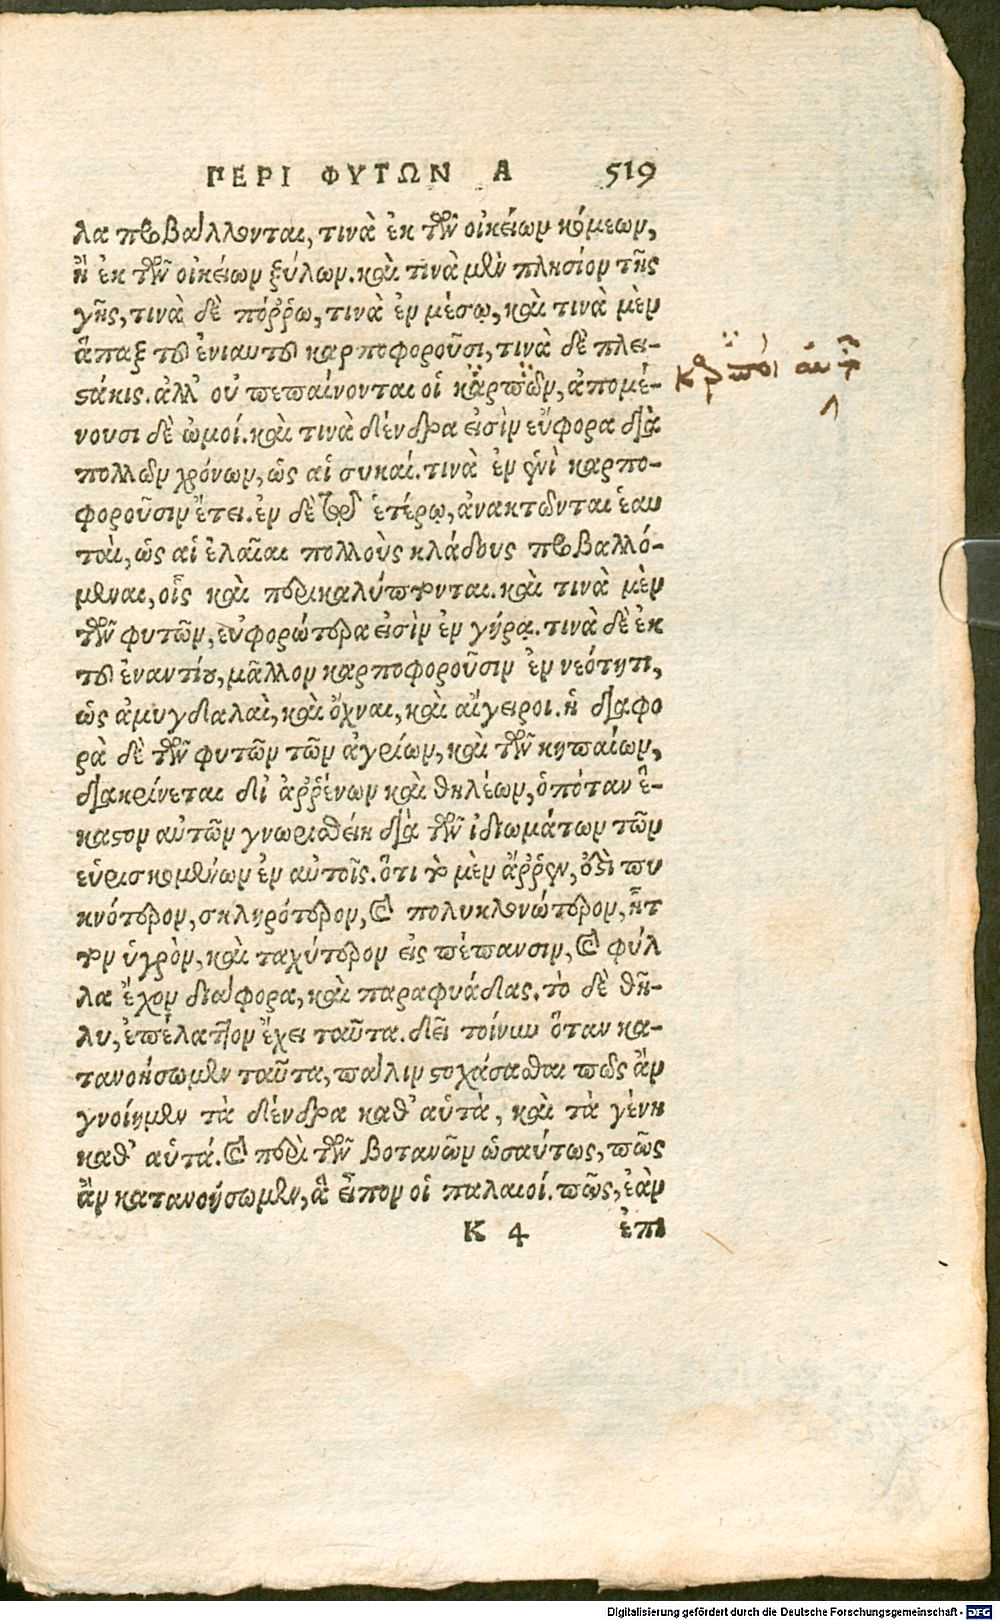 ΠΕΡΙ ΦΥΤΩΝ Α 519
λα προβάλλονται, τινὰ ἐκ τῶν οἰκείων κόμεων,
ἢ ἐκ τῶν οἰκείων ξύλων. καὶ τινὰ μὲν πλησίον τῆς
γῆς, τινὰ δὲ πόῤῥω, τινὰ ἐν μέσῳ, καὶ τινὰ μὲν
ἅπαξ τοῦ ἐνιαυτοῦ καρποφοροῦσι, τινὰ δὲ πλει-
στάκις. ἀλλ' οὐ πεπαίνονται οἱ καρπῶν, ἀπομέ-
νουσι δὲ ὠμοί. καὶ τινὰ δένδρα εἰσὶν εὔφορα διὰ
πολλῶν χρόνων, ὡς αἱ συκαί. τινὰ ἐν ἑνὶ καρπο-
φοροῦσιν ἔτει. ἐν δὲ τῷ ἑτέρῳ, ἀνακτῶνται ἑαυ
τὰ, ὡς αἱ ἐλαῖαι πολλοὺς κλάδους προβαλλό-
μεναι, οἷς καὶ περικαλύπτονται. καὶ τινὰ μὲν
τῶν φυτῶν, εὐφορώτερα εἰσὶν ἐν γήρᾳ. τινὰ δὲ ἐκ
τοῦ ἐναντίου, μᾶλλον καρποφοροῦσιν ἐν νεότητι,
ὡς ἀμυγδαλαὶ, καὶ ὄχναι, καὶ αἴγειροι. ἡ διαφο
ρὰ δὲ τῶν φυτῶν τῶν ἀγρίων, καὶ τῶν κηπαίων,
διακρίνεται δι' ἀῤῥένων καὶ θηλέων, ὁπόταν ἕ-
καστον αὐτῶν γνωρισθείη διὰ τῶν ἰδιωμάτων τῶν
εὑρισκομένων ἐν αὐτοῖς. ὅτι τὸ μὲν ἄῤῥεν, ἐστὶ πυ
κνότερον, σκληρότερον, καὶ πολυκλονώτερον, ἧτ
τον ὑγρὸν, καὶ ταχύτερον εἰς πέπανσιν, καὶ φύλ
λα ἔχον διάφορα, καὶ παραφυάδας. τὸ δὲ θῆ-
λυ, ἐπέλαττον ἔχει ταῦτα. δεῖ τοίνυν ὅταν κα-
τανοήσωμεν ταῦτα, πάλιν στοχάσασθαι πῶς ἂν
γνοίημεν τὰ δένδρα καθ' αὑτὰ, καὶ τὰ γένη
καθ' αὑτά. καὶ περὶ τῶν βοτανῶν ὡσαύτως, πῶς
ἂν κατανοήσωμεν, ἃ εἶπον οἱ παλαιοί. πῶς, ἐὰν
Κ 4 ἐπι